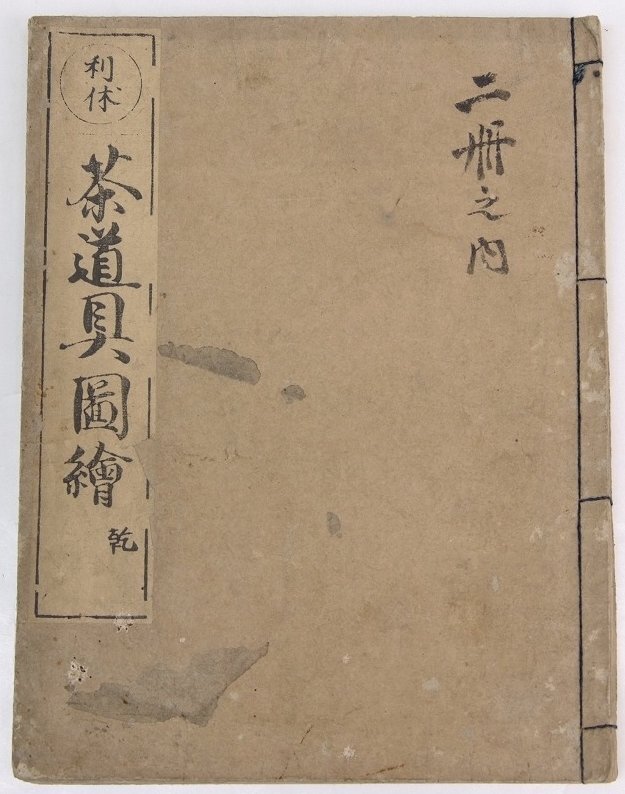 二冊之内
利休
茶道具圖繪
乾